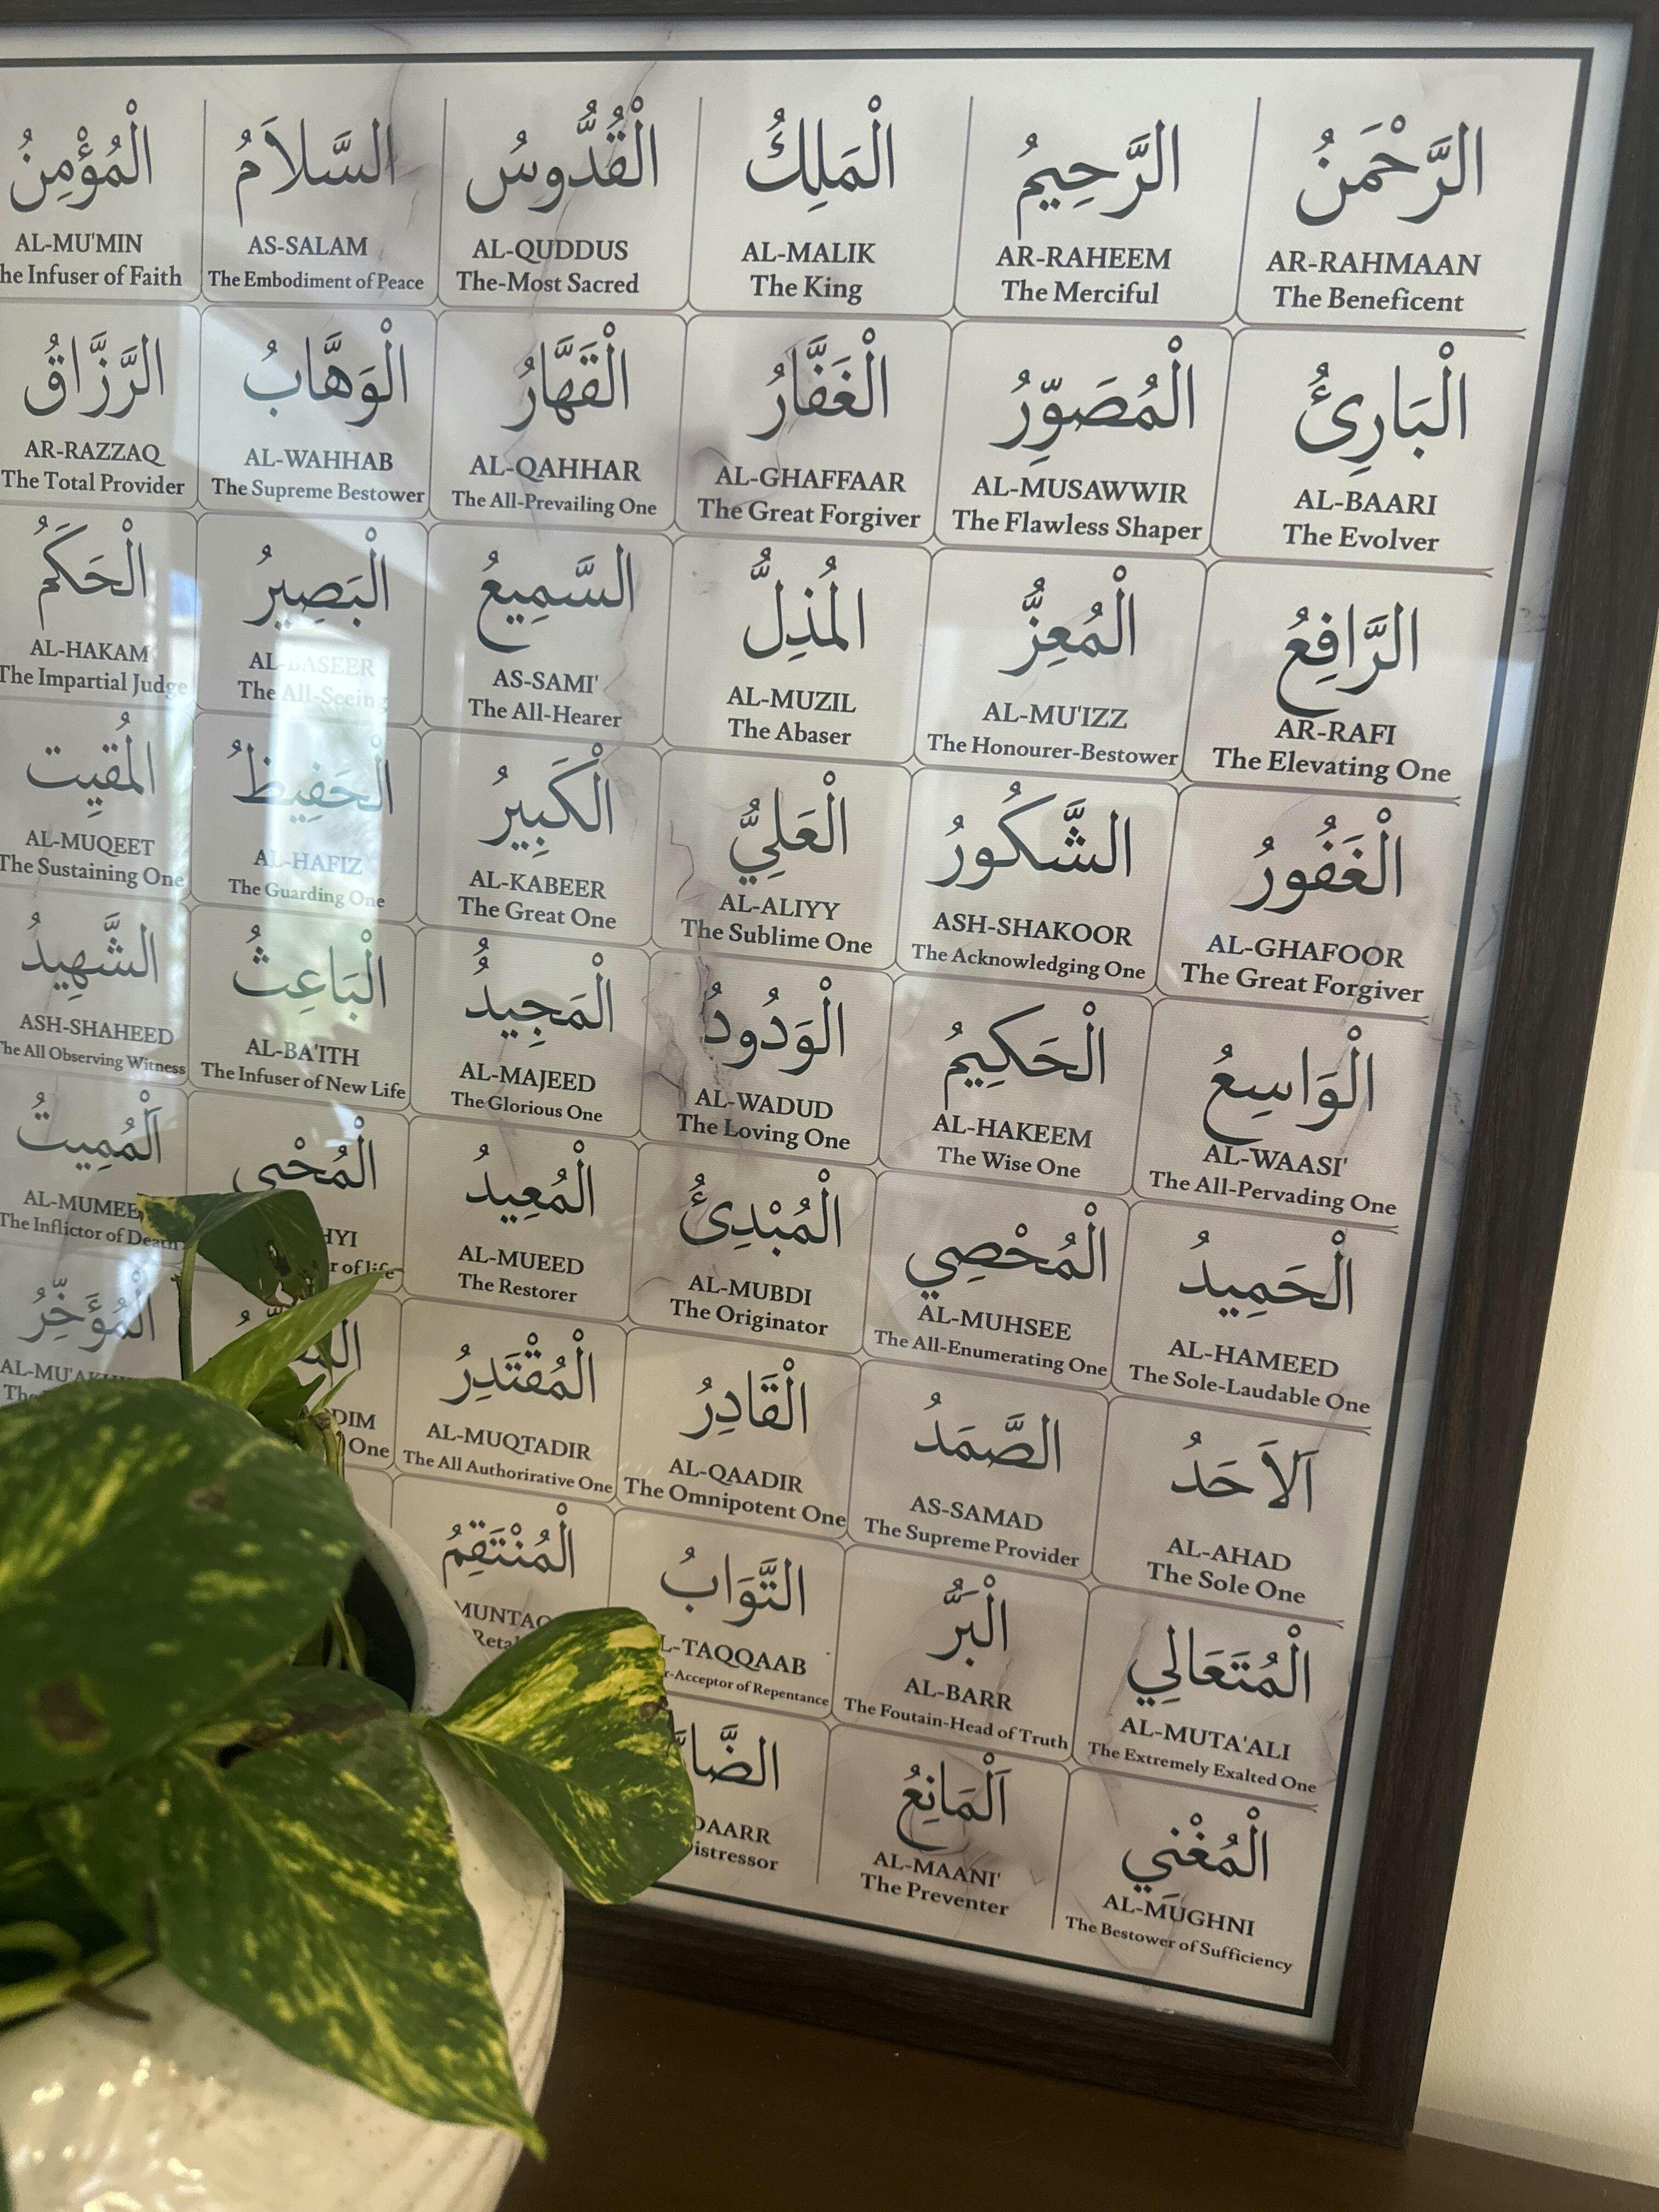 الْرَّحْمَنُ
AR-RAHMAAN
The Beneficent
الْرَّحِيمُ
AR-RAHEEM
The Merciful
الْمَلِكُ
AL-MALIK
The King
الْقُدُّوسُ
AL-QUDDUS
The-Most Sacred
السَّلاَمُ
AS-SALAM
The Embodiment of Peace
الْمُؤْمِنُ
AL-MU'MIN
Infuser of Faith
الْبَارِئُ
AL-BAARI
The Evolver
الْمُصَوِّرُ
AL-MUSAWWIR
The Flawless Shaper
الْغَفَّارُ
AL-GHAFFAAR
The Great Forgiver
الْقَهَّارُ
AL-QAHHAR
The All-Prevailing One
الْوَهَّابُ
AL-WAHHAB
The Supreme Bestower
الْرَّزَّاقُ
AR-RAZZAQ
The Total Provider
الرَّافِعُ
AR-RAFI
The Elevating One
الْمُعِزُّ
AL-MU'IZZ
The Honourer-Bestower
المُذِلُّ
AL-MUZIL
The Abaser
السَّمِيعُ
AS-SAMI'
The All-Hearer
الْبَصِيرُ
AL-BASEER
The All-Seeing
الْحَكَمُ
AL-HAKAM
The Impartial Judge
الْغَفُورُ
AL-GHAFOOR
The Great Forgiver
الشَّكُورُ
ASH-SHAKOOR
The Acknowledging One
الْعَلِيُّ
AL-ALIYY
The Sublime One
الْكَبِيرُ
AL-KABEER
The Great One
الْحَفِيظُ
AL-HAFIZ
The Guarding One
المُقيِت
AL-MUQEET
The Sustaining One
الْوَاسِعُ
AL-WAASI'
The All-Pervading One
الْحَكِيمُ
AL-HAKEEM
The Wise One
الْوَدُودُ
AL-WADUD
The Loving One
الْمَجِيدُ
AL-MAJEED
The Glorious One
الْبَاعِثُ
AL-BA'ITH
The Infuser of New Life
الشَّهِيدُ
ASH-SHAHEED
The All Observing Witness
الْحَمِيدُ
AL-HAMEED
The Sole-Laudable One
الْمُحْصِي
AL-MUHSEE
The All-Enumerating One
الْمُبْدِئُ
AL-MUBDI
The Originator
الْمُعِيدُ
AL-MUEED
The Restorer
الْمُحْيِي
HYI
of life
اَلْمُمِيتُ
AL-MUMEE
The Inflictor of Death
اَلاَحَدُ
AL-AHAD
The Sole One
الصَّمَدُ
AS-SAMAD
The Supreme Provider
الْقَادِرُ
AL-QAADIR
The Omnipotent One
الْمُقْتَدِرُ
AL-MUQTADIR
The All Authorirative One
DIM
One
الْمُؤَخِّرُ
AL-MU'AKH
The
الْمُتَعَالِي
AL-MUTA'ALI
The Extremely Exalted One
الْبَرُّ
AL-BARR
The Foutain-Head of Truth
التَّوَابُ
L-TAQQAAB
r-Acceptor of Repentance
الْمُنْتَقِمُ
MUNTAQ
Retal
الْمُغْنِي
AL-MUGHNI
The Bestower of Sufficiency
اَلْمَانِعُ
AL-MAANI'
The Preventer
الضَّا
DAARR
istressor